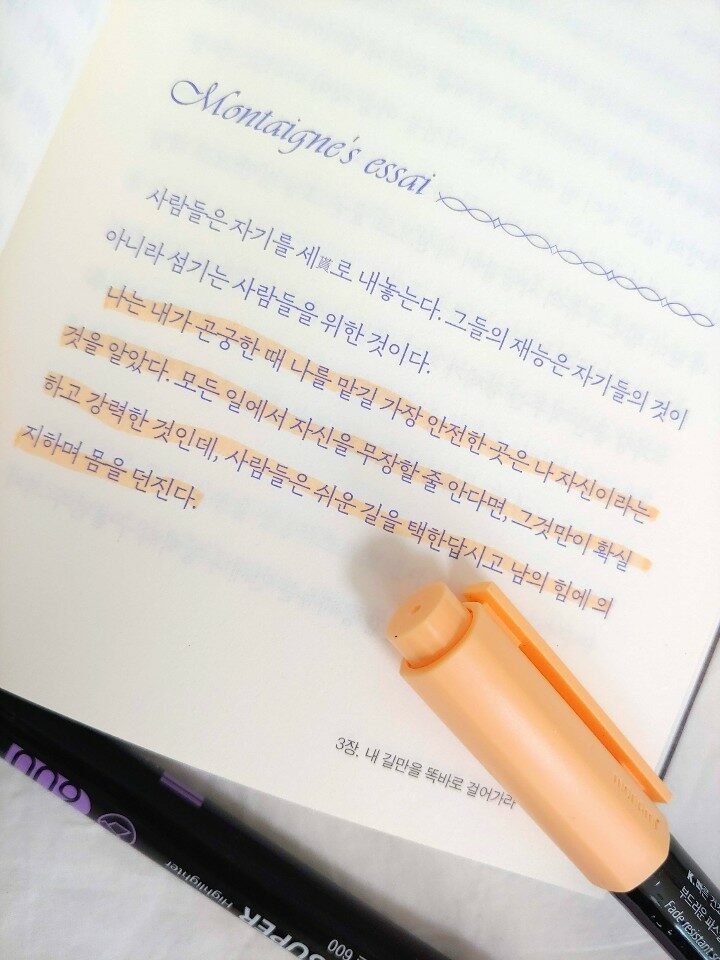 Montaigne's essai
사람들은 자기를 세貰로 내놓는다. 그들의 재능은 자기들의 것이
아니라 섬기는 사람들을 위한 것이다.
나는 내가 곤궁한 때 나를 맡길 가장 안전한 곳은 나 자신이라는
것을 알았다. 모든 일에서 자신을 무장할 줄 안다면, 그것만이 확실
하고 강력한 것인데, 사람들은 쉬운 길을 택한답시고 남의 힘에 의
지하며 몸을 던진다.
3장. 내 길만을 똑바로 걸어가라
SUPER Highlighter
600
부드러운 파스
Fade resistant